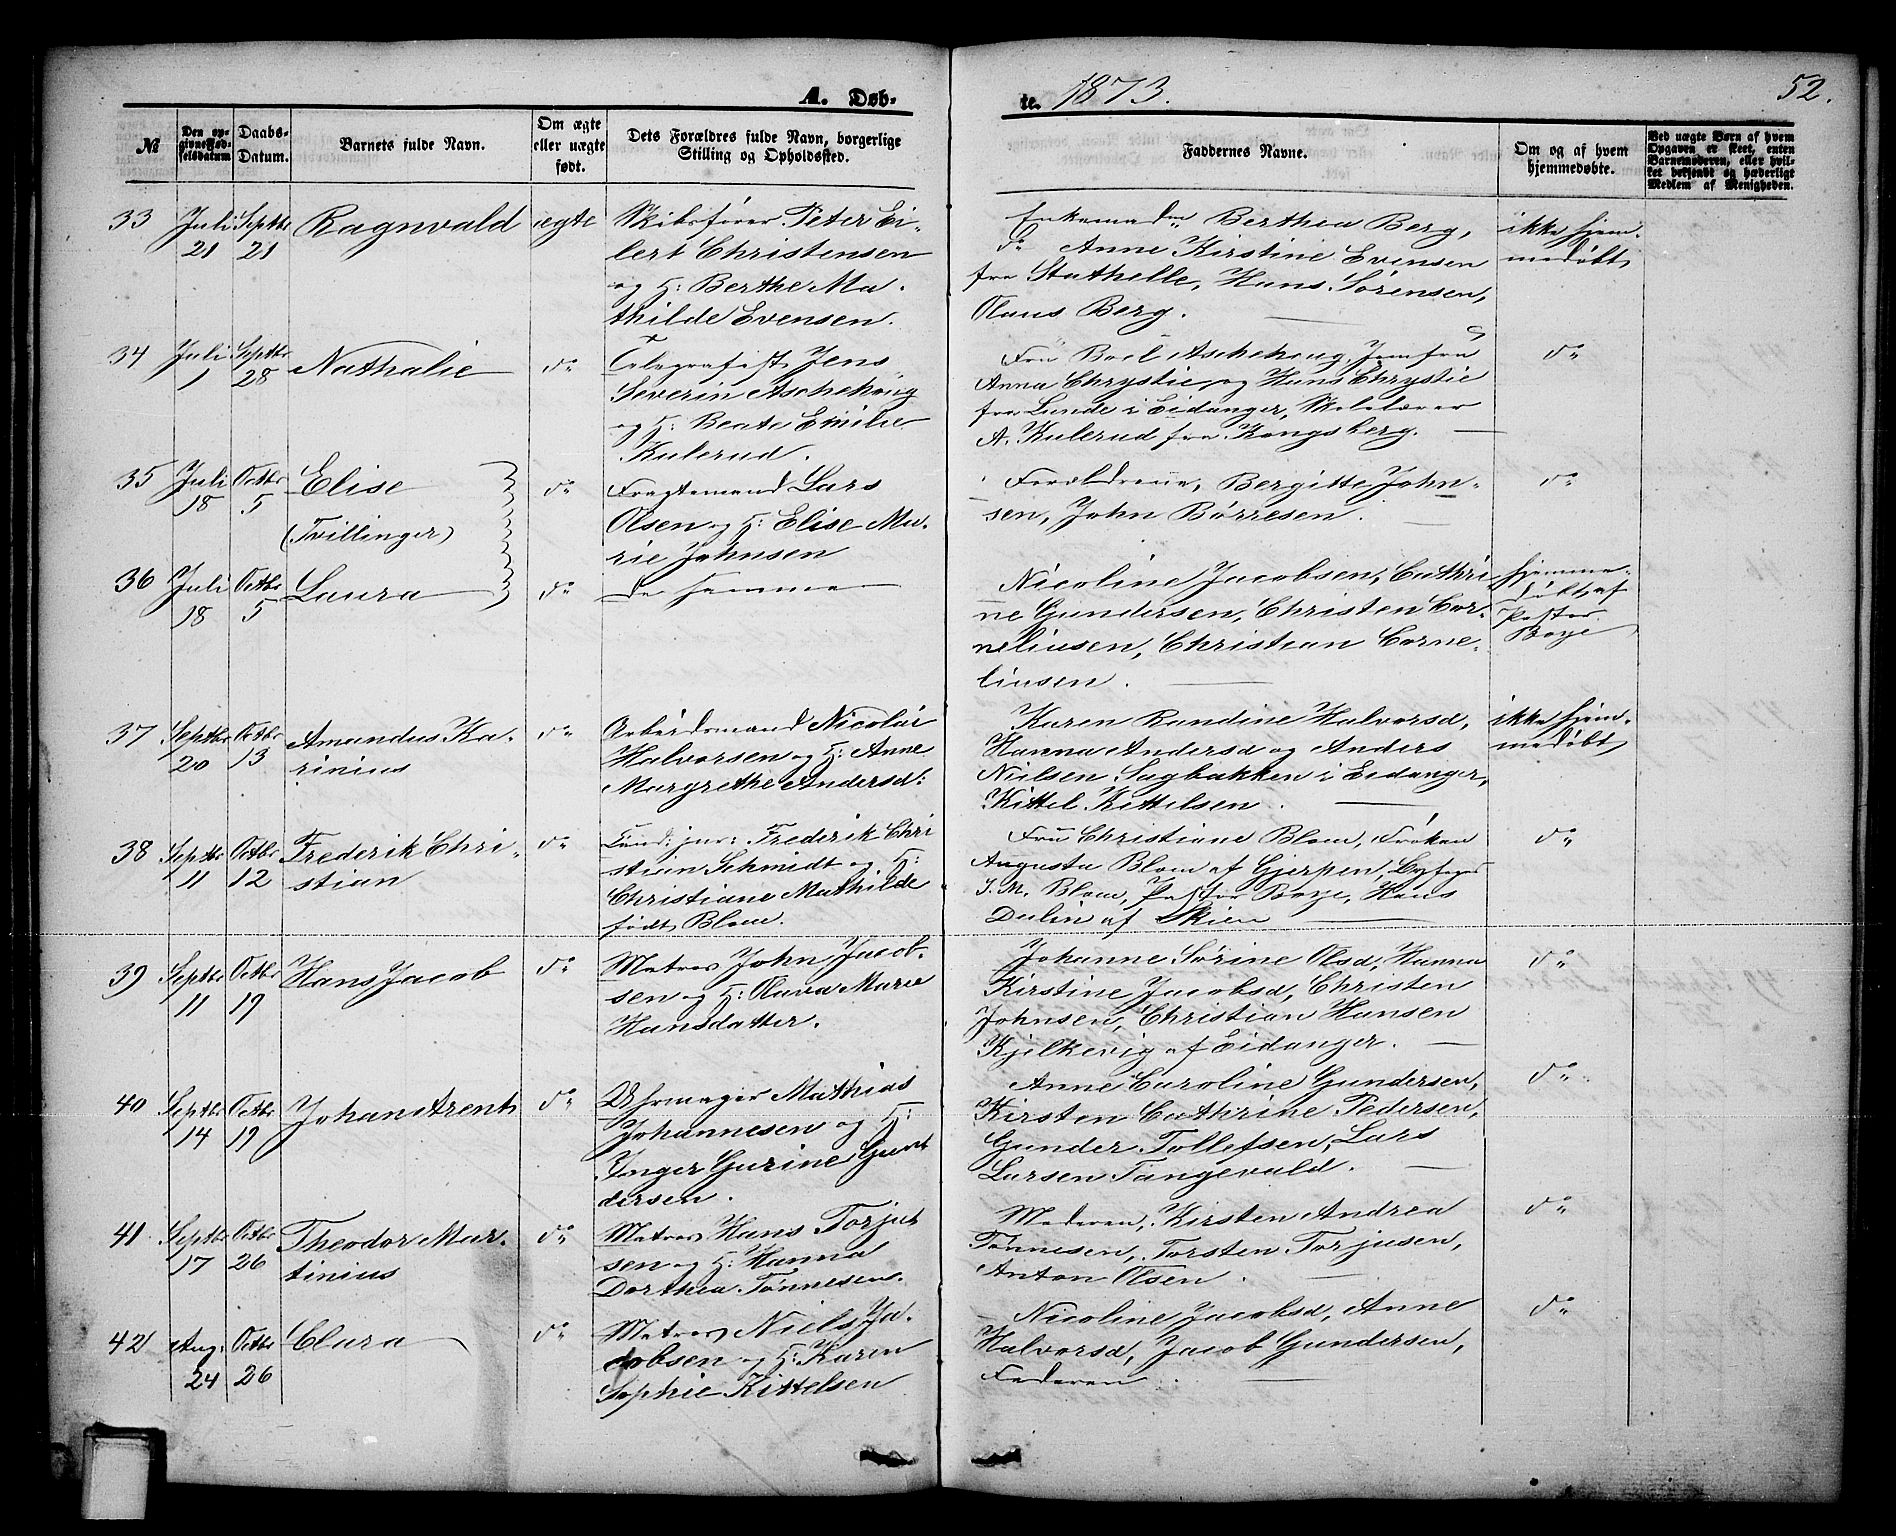 A. Døb-
te. 1873.
52.
№
Den opgivne Fødselsdatum
Daabs-Datum.
Barnets fulde Navn.
Om ægte eller uægte født.
Dets Forældres fulde Navn, borgerlige Stilling og Opholdssted.
Faddernes Navne.
Om og af hvem hjemmedøbte.
Ved uægte Børn af hvem Opgaven er skeet, enten Barnemoderen, eller hvilket bekjendt og hæderligt Medlem af Menigheden.
33 Juli 21 Septbr 21 Ragnvald ægte
Skibsfører Peter Ei-
lert Christensen
og H: Berthe Ma-
thilde Evensen.
Enkemadm Berthea Berg,
do Anne Kirstine Evensen
fra Stathelle, Hans Sørensen,
Olaus Berg.
ikke hjem-
medøbt
34 Juli 1 Septbr 28 Nathalie do
Telegrafist Jens
Severin Aschehoug
og H: Beate Emilie
Kulerud.
Fru Boel Aschehoug, Jomfru
Anna Chrystie og Hans Chrystie
fra Lunde i Eidanger, Skolelærer
A. Kulerud fra Kongsberg.
do
35 Juli 18 Octbr 5 Elise do
(Tvillinger)
Fragtemand Lars
Olsen og H: Elise Ma-
rie Johnsen
Forældrene, Bergitte John-
sen, John Börresen.
do
36 Juli 18 Octbr 5 Laura do
De samme
Nicoline Jacobsen, Cathri
ne Gundersen, Christen Cor-
neliusen, Christian Corne-
liusen.
hjemme-
døbt af
Pastor
Boye
37 Septbr 20 Octbr 13 Amandus Ka-
rinius do
Arbeidsmand Nicolai
Halvorsen og H: Anne
Margrethe Andersd:
Karen Randine Halvorsd,
Hanna Andersd og Anders
Nielsen Sagbakken i Eidanger,
Kittel Kittelsen.
ikke hjem-
medøbt
38 Septbr 11 Octbr 12 Frederik Chri-
stian do
Cand: jur: Frederik Chri
stian Schmidt og H:
Christiane Mathilde
født Blom.
Fru Christiane Blom, Frøken
Augusta Blom af Gjerpen, Byfoged
Blom, Pastor Boye, Hans
af Skien
do
39 Septbr 11 Octbr 19 Hans Jacob do
Matros John Jacob-
sen og H: Olava Marie
Hansdatter.
Johanne Sørine Olsd, Hanna
Kirstine Jacobsd, Christen
Johnsen, Christian Hansen
Kjelkevig af Eidanger.
do
40 Septbr 14 Octbr 19 Johan Arent do
Uhrmager Mathias
Johannesen og H:
Inger Gurine Gun
dersen.
Anne Caroline Gundersen,
Kirsten Cathrine Pedersen,
Gunder Tollefsen, Lars
Larsen Tangevald.
do
41 Septbr 17 Octbr 26 Theodor Mar-
tinius do
Matros Hans Torju
sen og H: Hanna
Dorthea Tønnesen.
Moderen, Kirsten Andrea
Tønnesen, Torsten Torjusen,
Anton Olsen.
do
42 Aug: 24 Octbr 26 Clara do
Matros Niels Ja-
cobsen og H: Karen
Sophie Kittelsen
Nicoline Jacobsd, Anne
Halvorsd, Jacob Gundersen,
Faderen.
do